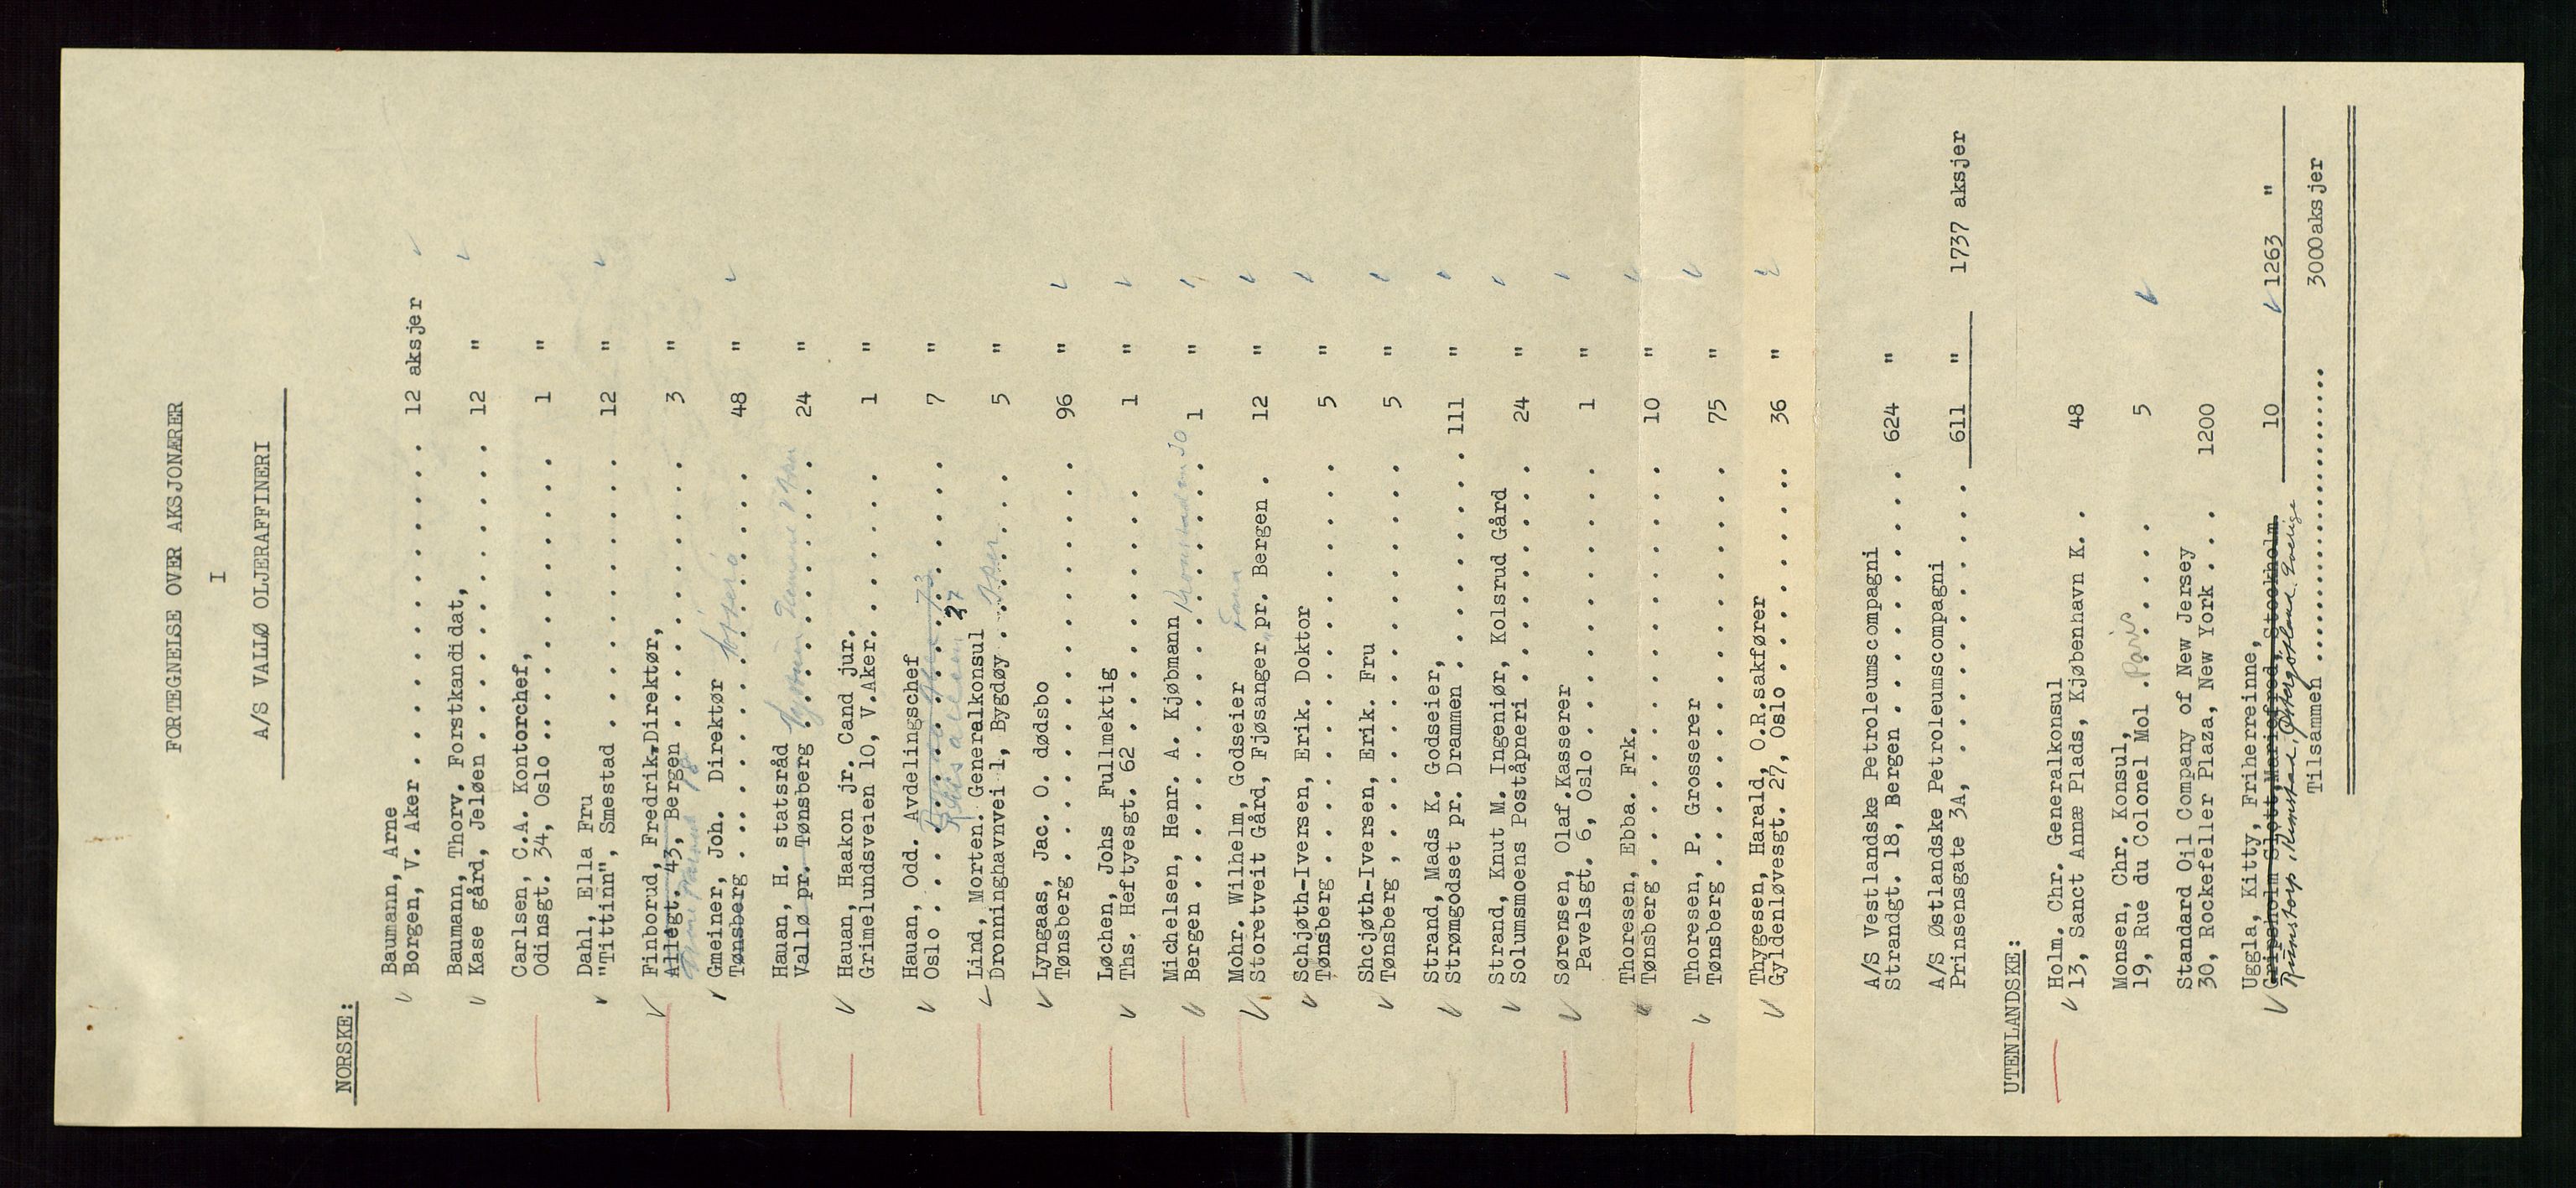 FORTEGNELSE OVER AKSJONÆRER
I
A/S VALLØ OLJERAFFINERI
NORSKE:
Baumann, Arne
Borgen, V. Aker . . . . . . . . . . . . . 12 aksjer
Baumann, Thorv. Forstkandidat,
Kase gård, Jeløen . . . . . . . . . . . . 12 "
Carlsen, C.A. Kontorchef,
Odinsgt. 34, Oslo . . . . . . . . . . . . 1 "
Dahl, Ella Fru
"Tittinn", Smestad . . . . . . . . . . . 12 "
Finborud, Fredrik.Direktør,
Allégt. 43, Bergen . . . . . . . . . . . 3 "
Gmeiner, Joh. Direktør
Tønsberg . . . . . . . . . . . . . . . . 48 "
Hauan, H. statsråd
Vallø pr. Tønsberg . . . . . . . . . . . 24 "
Hauan, Haakon jr. Cand jur.
Grimelundsveien 10, V.Aker. . . . . . . . 1 "
Hauan, Odd. Avdelingschef
Oslo . . . . . . . . . . . . . . . . . . 7 "
73
37
Lind, Morten. Generalkonsul
Dronninghavnvei 1, Bygdøy . . . . . . . . 5 "
Aker
Lyngaas, Jac. O. dødsbo
Tønsberg . . . . . . . . . . . . . . . . 96 "
Løchen, Johs Fullmektig
Ths. Heftyesgt. 62 . . . . . . . . . . . 1 "
Michelsen, Henr. A. Kjøbmann
Bergen . . . . . . . . . . . . . . . . . 1 "
Mohr. Wilhelm, Godseier
Fana
Storetveit Gård, Fjøsanger pr. Bergen . 12 "
Schjøth-Iversen, Erik. Doktor
Tønsberg . . . . . . . . . . . . . . . . 5 "
Shcjøth-Iversen, Erik. Fru
Tønsberg , . . . . . . . . . . . . . . . 5 "
Strand, Mads K. Godseier,
Strømgodset pr. Drammen . . . . . . . . . 111 "
Strand, Knut M. Ingeniør, Kolsrud Gård
Solumsmoens Poståpneri . . . . . . . . . 24 "
Sørensen, Olaf.Kasserer
Pavelsgt. 6, Oslo . . . . . . . . . . . . 1 "
Thoresen, Ebba. Frk.
Tønsberg . . . . . . . . . . . . . . . . 10 "
Thoresen, P. Grosserer
Tønsberg . . . . . . . . . . . . . . . . 75 "
Thygesen, Harald, O.R.sakfører
Gyldenløvesgt. 27, Oslo . . . . . . . . . 36 "
A/S Vestlandske Petroleumscompagni
Strandgt. 18, Bergen . . . . . . . . . . 624 "
A/S Østlandske Petroleumscompagni
Prinsensgate 3A, . . . . . . . . . . . . 611 " 1737 aksjer
UTENLANDSKE:
Holm. Chr. Generalkonsul
13, Sanct Annæ Plads, Kjøbenhavn K. . 48
Monsen, Chr. Konsul,
19, Rue du Colonel Mol . Paris . . . . 5
Standard Oil Company of New Jersey
30, Rockefeller Plaza, New York . . . 1200
Uggla, Kitty, Friherreinne,
Gripsholm Slott,Mariefred, Stockholm 10 1263 "
Rimstad, Östergötland. Sverige
Tilsammen .............................. 3000aksjer